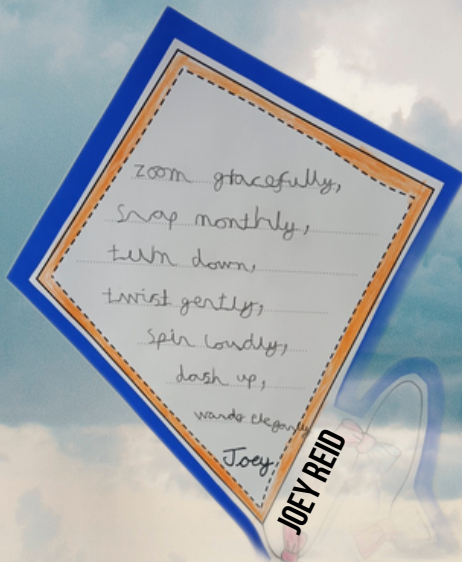 zoom gracefully,
snap monthly,
turn down,
twist gently,
spin loudly,
dash up,
elegantly
Joey
JOEY REID